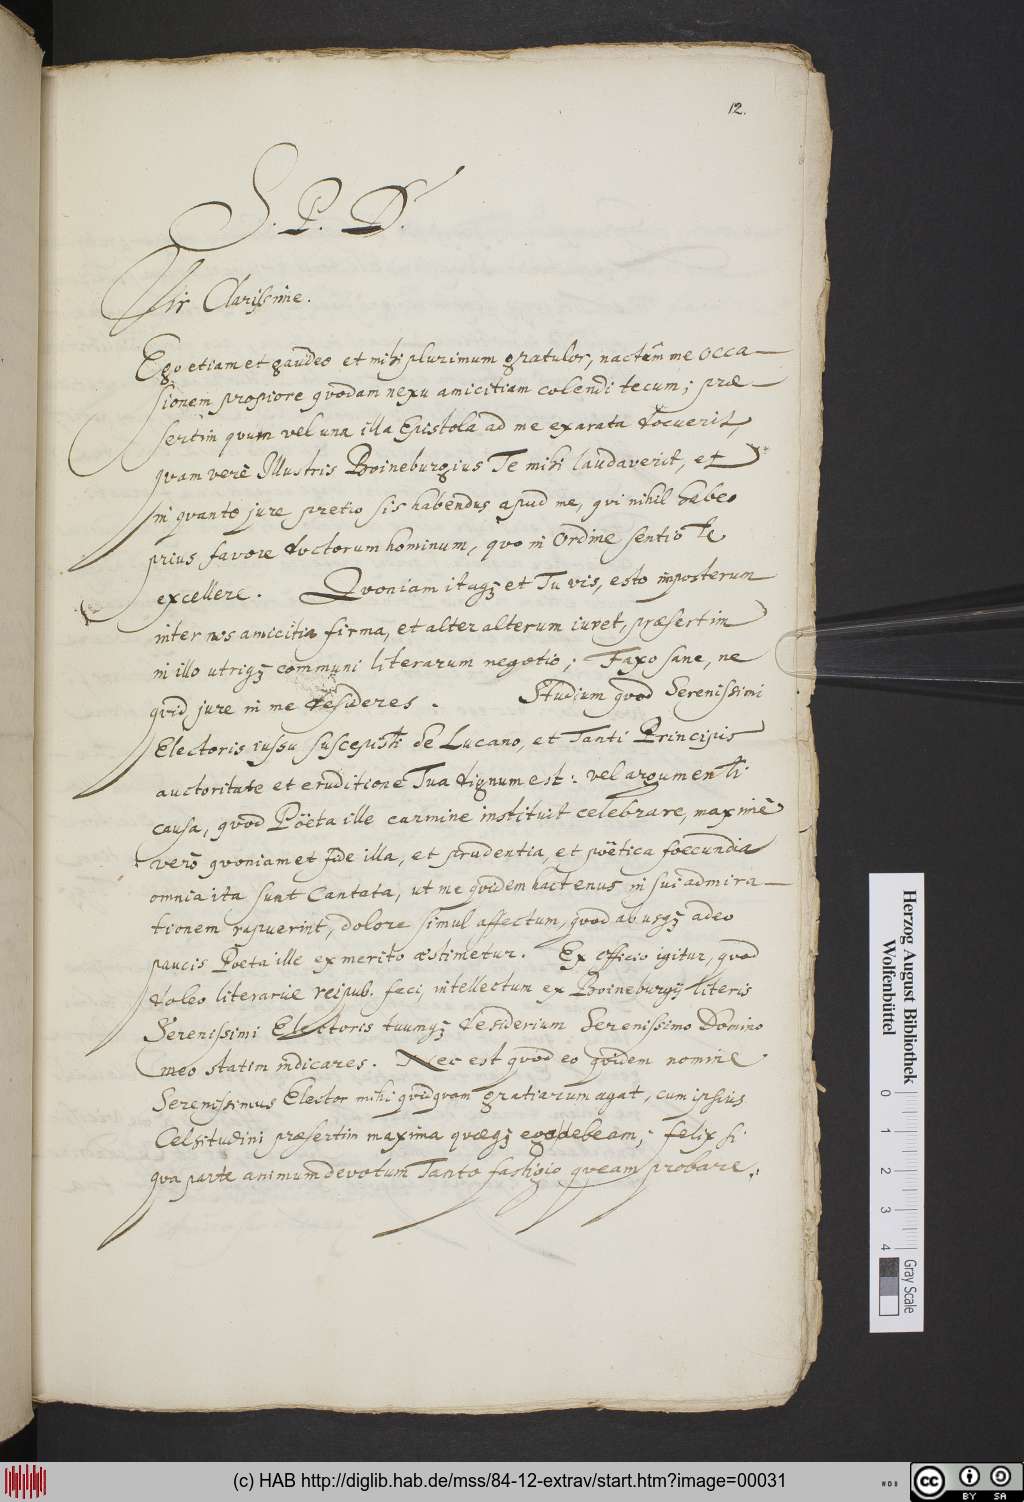 12.
S. P. D.
Vir Clarissime.
Ego etiam et gaudeo et mihi plurimum gratulor, nactum me occa-
sionem propiore quodam nexu amicitiam colendi tecum; præ-
sertim quum vel una illa Epistola ad me exarata docuerit,
quam verè Illustris Boineburgius Te mihi laudaverit, et
in quanto jure pretio sis habendus apud me, qui nihil habeo
prius favore doctorum hominum, quo in Ordine sentio Te
excellere. Quoniam itaqꝫ et Tu vis, esto imposterum
inter nos amicitia firma, et alter alterum iuret, præsertim
in illo utriqꝫ communi literarum negotio; Faxo sane, ne
quid jure in me desideres. Studium quod Serenissimi
Electoris iussu suscepisti de Lucano, et Tanti Principis
auctoritate et eruditione Tua dignum est: vel argumenti
causa, quod Poëta ille carmine instituit celebrare, maximè
verò quoniam et fide illa, et prudentia, et poëtica foecundia
omnia ita sunt Cantata, ut me quidem hactenus in sui admira-
tionem rapuerint, dolore simul affectum, quod ab usqꝫ adeo
paucis Poeta ille ex merito æstimetur. Ex Officio igitur, quod
debeo literariæ reipub. feci, intellectum ex Boineburgij literis
Serenissimi Electoris tuumqꝫ desiderium Serenissimo Domino
meo statim indicares. Nec est quod eo quidem nomine
Serenissimus Elector mihi quidquam gratiarum agat, cum ipsius
Celsitudini præsertim maxima quæqꝫ ego debeam; felix si
qua parte animum devotum Tanto fastigio queam probare.
Herzog August Bibliothek
Wolfenbüttel
0 1 2 3 4
Gray Scale
(c) HAB http://diglib.hab.de/mss/84-12-extrav/start.htm?image=00031
WDB
cc BY SA